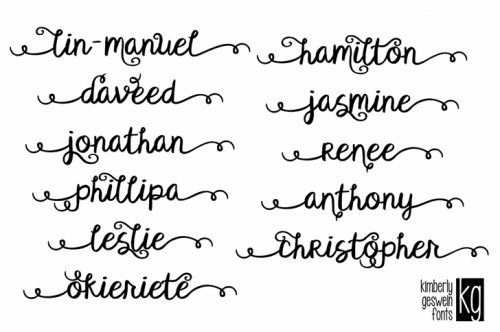 lin-manuel
daveed
jonathan
phillipa
leslie
okieriete
hamilton
jasmine
renee
anthony
christopher
kimberly
geswein
fonts
kg